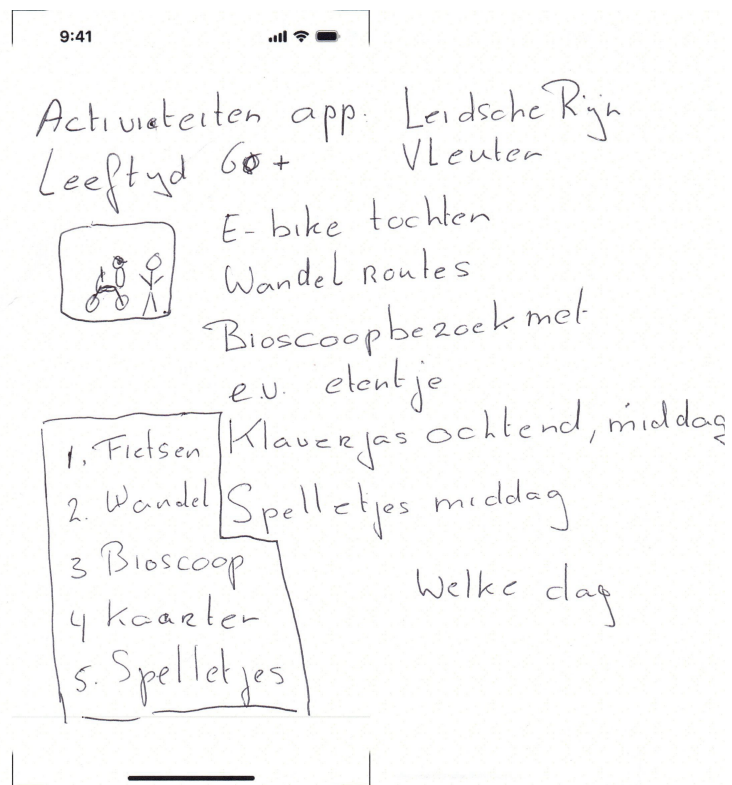 9:41
Activiteiten app: Leidsche Rijn
Leeftyd 60+ Vleuten
E-bike tochten
Wandel Routes
Bioscoopbezoek met
e.v. etentje
Klaverjas ochtend, middag
Spelletjes middag
Welke dag
1. Fietsen
2. Wandel
3 Bioscoop
4 Kaarten
5. Spelletjes